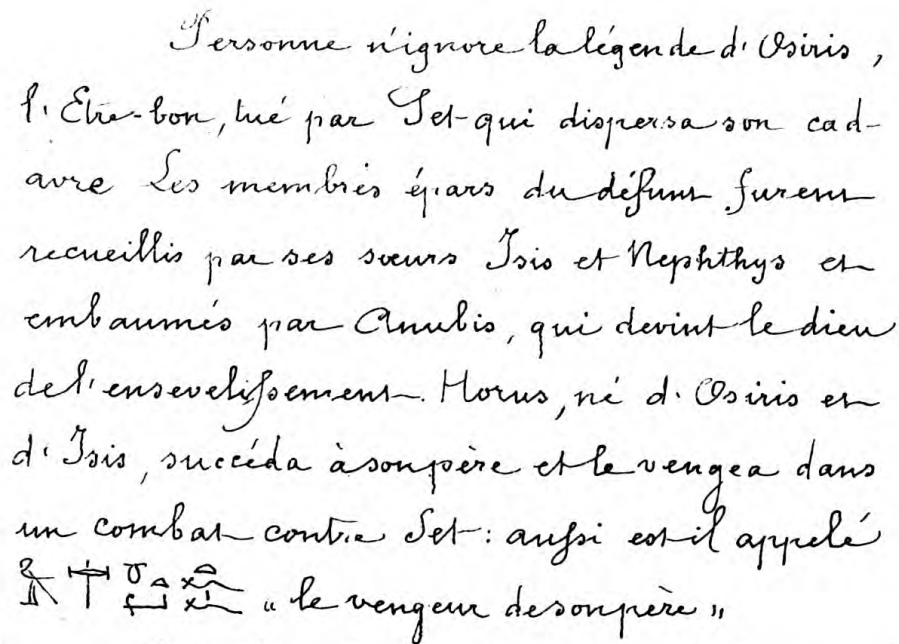 Personne n'ignore la légende d'Osiris,
l'Etre-bon, tué par Set qui dispersa son cad-
avre Les membres épars du défunt furent
recueillis par ses sœurs Isis et Nephthys et
embaumés par Anubis, qui devint le dieu
de l'ensevelissement. Horus, né d'Osiris et
d'Isis, succéda à son père et le vengea dans
un combat contre Set: aussi est-il appelé
« le vengeur de son père »